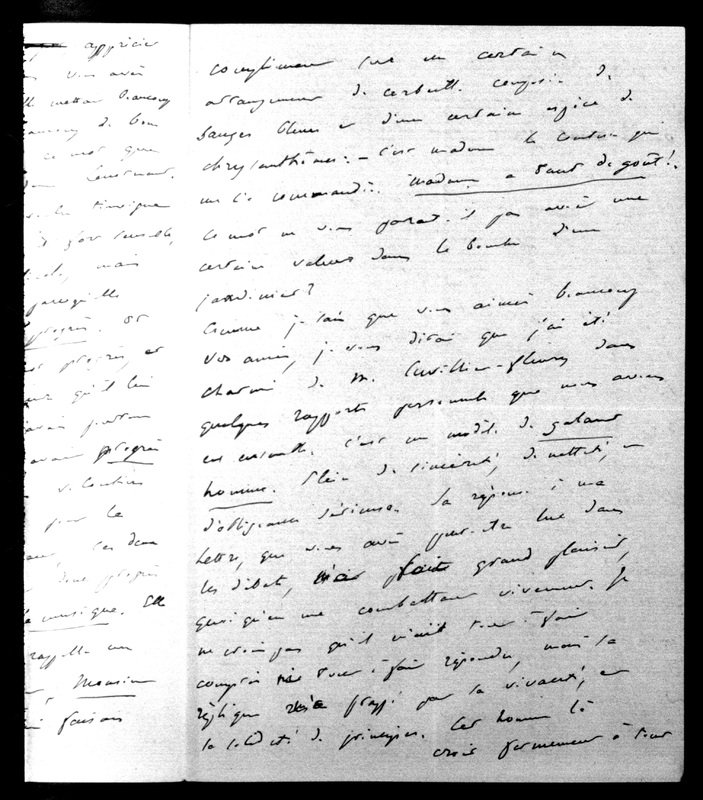 apprécier
vous avez
mettre beaucoup
de bon
ce mot que
fort sensible,
mais
parce qu'elle
progrès. Et
progrès, et
qu'il lui
avait
avait progrès
volontiers
pour la
ces deux
deux progrès
la musique. Elle
rappelle un
Monsieur
faisais
compliment sur un certain
arrangement de corbeille composée de
sauges bleues et d'une certaine espèce de
chrysanthèmes : – c'est madame la Comtesse qui
me l'a commandée. Madame a tant de goût !.
Ce mot ne vous paraît-il pas avoir une
certaine valeur dans la bouche d'un
jardinier ?
Comme je sais que vous aimez beaucoup
vos amis, je vous dirai que j'ai été
charmé de M. Cuvillier-fleury dans
quelques rapports personnels que nous avons
eus ensemble. C'est un modèle de galant
homme. Plein de sincérité, de netteté, et
d'obligeance sérieuse. Sa réponse à ma
lettre, que vous avez peut-être lue dans
les débats, m'a fait grand plaisir,
quoiqu'en me combattant vivement. Je
ne crois pas qu'il m'ait tout à fait
compris ni tout à fait répondu, mais sa
réplique m'a frappé par la vivacité, et
la solidité de principes. Cet homme là
croit fermement à tout